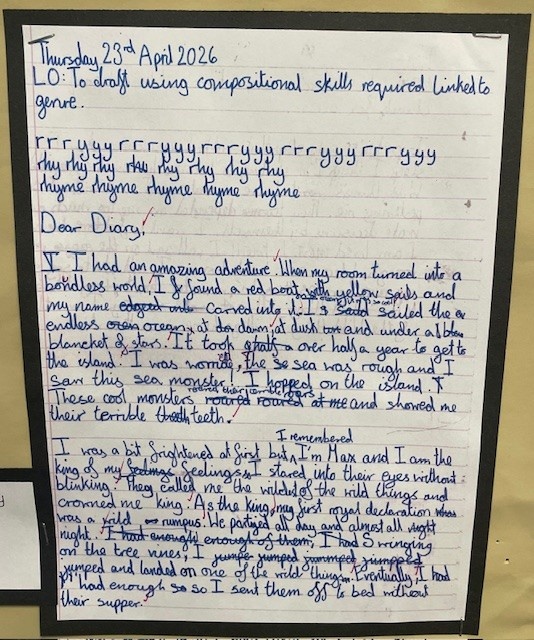 Thursday 23rd April 2026
LO: To draft using compositional skills required linked to
genre.
rrryyy rrryyy rrryyy rrryyy rrryyy
rhy rhy rhy rhy rhy rhy rhy
rhyme rhyme rhyme rhyme rhyme
Dear Diary,
I had an amazing adventure. When my room turned into a
bondless world, I found a red boat with yellow sails and
my name carved into it. I sailed the
endless ocean, at dawn, at dusk and under a
blancket of stars. It took over half a year to get to
the island. I was worried, The sea was rough and I
saw this sea monster. I hopped on the island.
These cool monsters roared their terrible roars and showed me
their terrible teeth.
I was a bit frightened at first but I remembered I'm Max and I am the
king of my feelings. I stared into their eyes without
blinking. They called me the wildest of the wild things and
crowned me king. As the king, my first royal declaration
was a wild rumpus. We partied all day and almost all
night. I had enough enough of them, I had Swringing
on the tree vines, I jumper jumped jummped jumpped
jumped and landed on one of the wild things. Eventually, I had
had enough so so I sent them off to bed without
their supper.